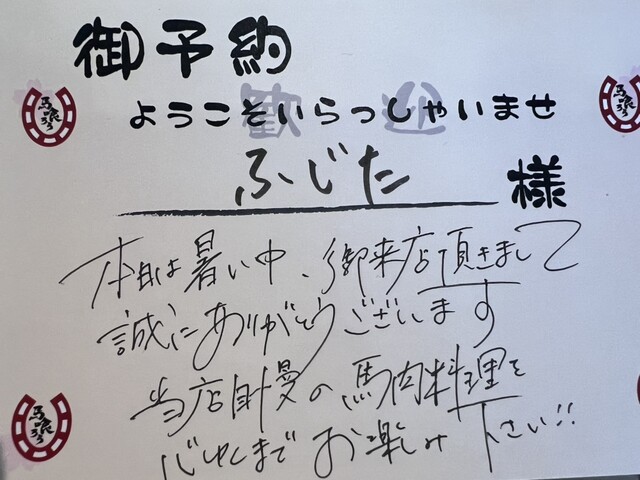 御予約
歓迎
ようこそいらっしゃいませ
ふじた 様
本日は暑い中、御来店頂きまして
誠にありがとうございます
当店自慢の馬肉料理を
心ゆくまでお楽しみ下さい!!